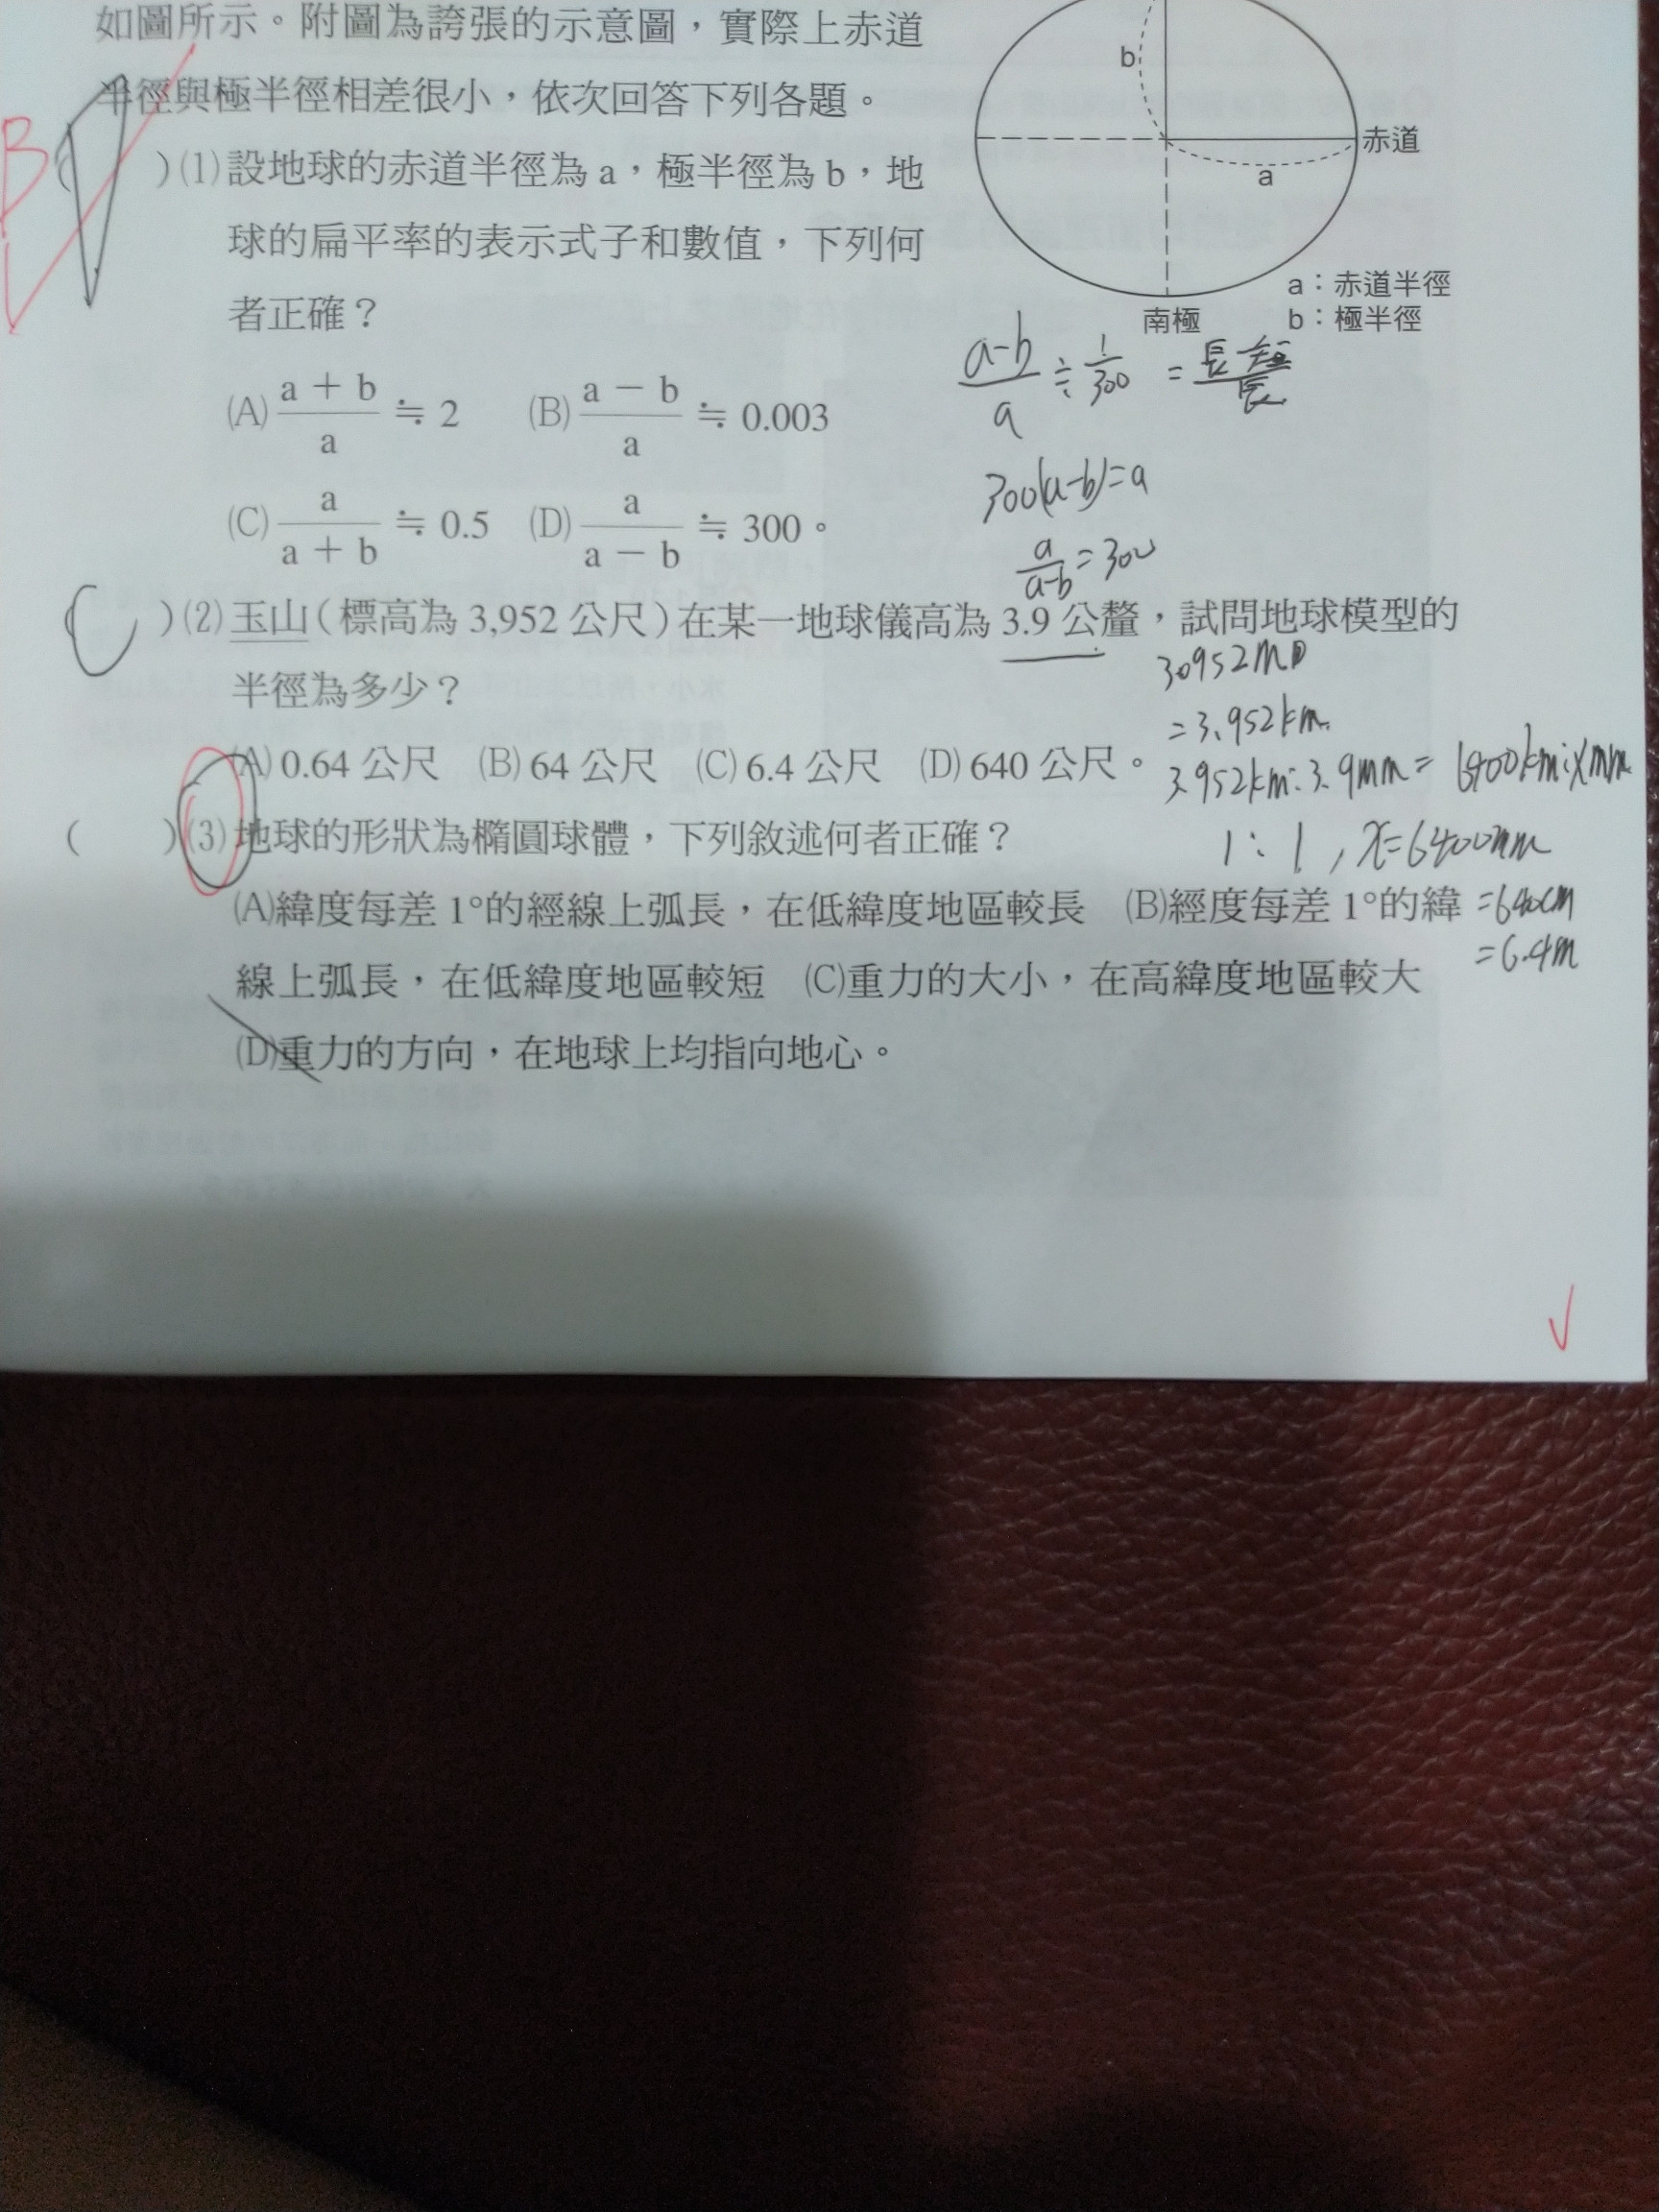 如圖所示。附圖為誇張的示意圖,實際上赤道
半徑與極半徑相差很小,依次回答下列各題。
b
赤道
a
南極
a:赤道半徑
b:極半徑
B
( )(1)設地球的赤道半徑為 a,極半徑為 b,地
球的扁平率的表示式子和數值,下列何
者正確?
(A) (a + b)/a ≒ 2 (B) (a − b)/a ≒ 0.003
(C) a/(a + b) ≒ 0.5 (D) a/(a − b) ≒ 300。
(a-b)/a ≒ 1/300 = (長-短)/長
300(a-b)=a
a/(a-b)=300
(C)(2)玉山(標高為 3,952 公尺)在某一地球儀高為 3.9 公釐,試問地球模型的
半徑為多少?
(A) 0.64 公尺 (B) 64 公尺 (C) 6.4 公尺 (D) 640 公尺。
=3.952km
3.952km:3.9mm=6400km:xmm
1:1,x=6400mm
=640cm
=6.4m
( )(3)地球的形狀為橢圓球體,下列敘述何者正確?
(A)緯度每差 1°的經線上弧長,在低緯度地區較長 (B)經度每差 1°的緯
線上弧長,在低緯度地區較短 (C)重力的大小,在高緯度地區較大
(D)重力的方向,在地球上均指向地心。